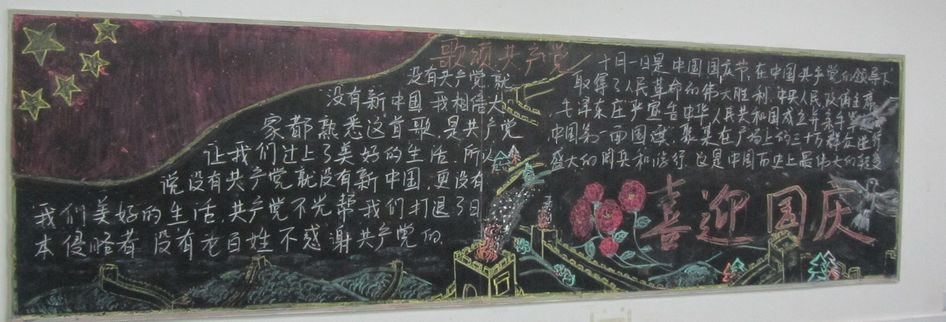 歌颂共产党
没有共产党就
没有新中国 我相信大
家都熟悉这首歌,是共产党
让我们过上了美好的生活,所以
说没有共产党就没有新中国,更没有
我们美好的生活,共产党不光帮我们打退了日
本侵略者,没有老百姓不感谢共产党的.
十月一日是中国国庆节,在中国共产党的领导下
取得了人民革命的伟大胜利.中央人民政府主席
毛泽东庄严宣告中华人民共和国成立
中国第一面国旗,聚集在广场上的三十万群众进行
盛大的阅兵和游行.这是中国历史上最伟大的转变
喜迎国庆